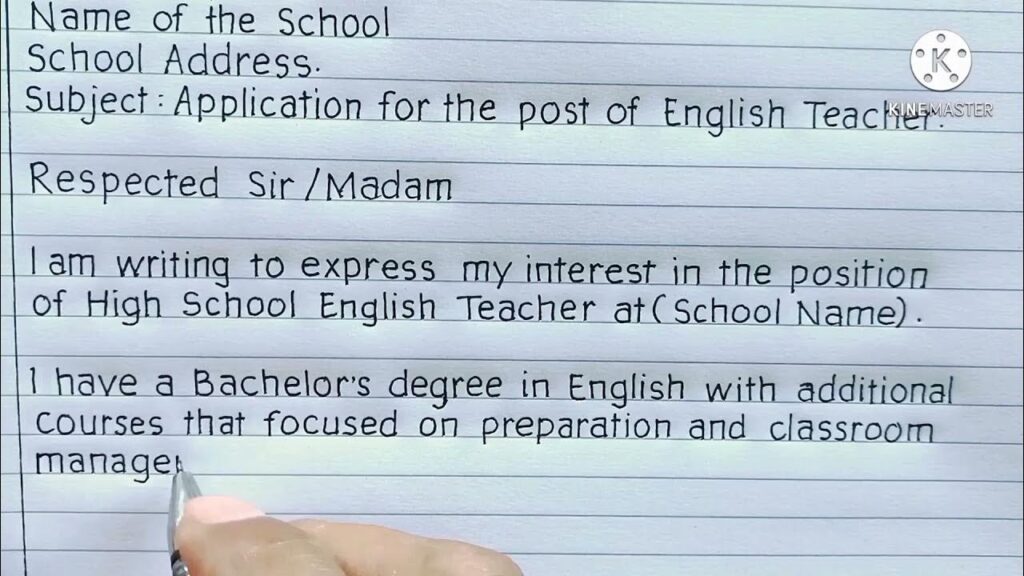 Name of the School
School Address.
Subject : Application for the post of English Teacher.
Respected Sir/Madam
I am writing to express my interest in the position
of High School English Teacher at (School Name).
I have a Bachelor's degree in English with additional
courses that focused on preparation and classroom
manage
K
KINEMASTER